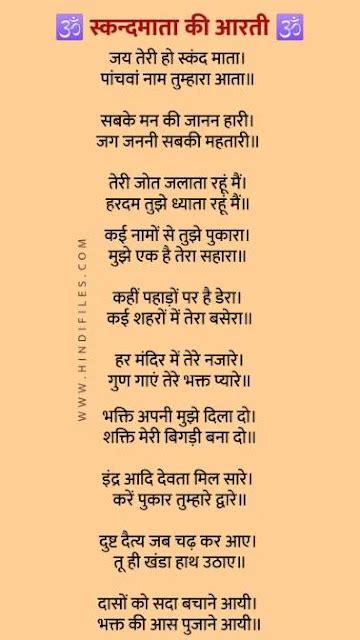 🕉 स्कन्दमाता की आरती 🕉
जय तेरी हो स्कंद माता।
पांचवां नाम तुम्हारा आता॥
सबके मन की जानन हारी।
जग जननी सबकी महतारी॥
तेरी जोत जलाता रहूं मैं।
हरदम तुझे ध्याता रहूं मैं॥
कई नामों से तुझे पुकारा।
मुझे एक है तेरा सहारा॥
कहीं पहाड़ों पर है डेरा।
कई शहरों में तेरा बसेरा॥
हर मंदिर में तेरे नजारे।
गुण गाएं तेरे भक्त प्यारे॥
भक्ति अपनी मुझे दिला दो।
शक्ति मेरी बिगड़ी बना दो॥
इंद्र आदि देवता मिल सारे।
करें पुकार तुम्हारे द्वारे॥
दुष्ट दैत्य जब चढ़ कर आए।
तू ही खंडा हाथ उठाए॥
दासों को सदा बचाने आयी।
भक्त की आस पुजाने आयी॥
WWW.HINDIFILES.COM